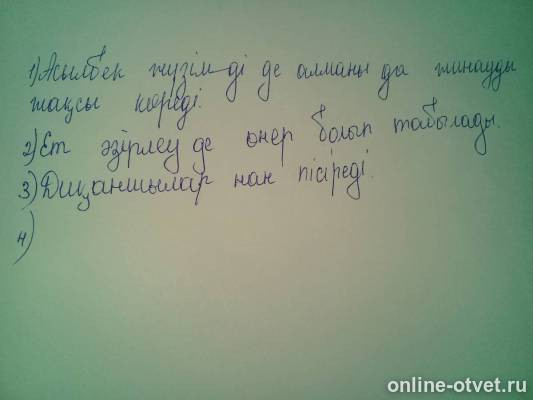 1) Асылбек жүзімді де алманы да жинауды
жақсы көреді.
2) Ет әзірлеу де өнер болып табылады.
3) Диқаншылар нан пісіреді.
4)
online-otvet.ru